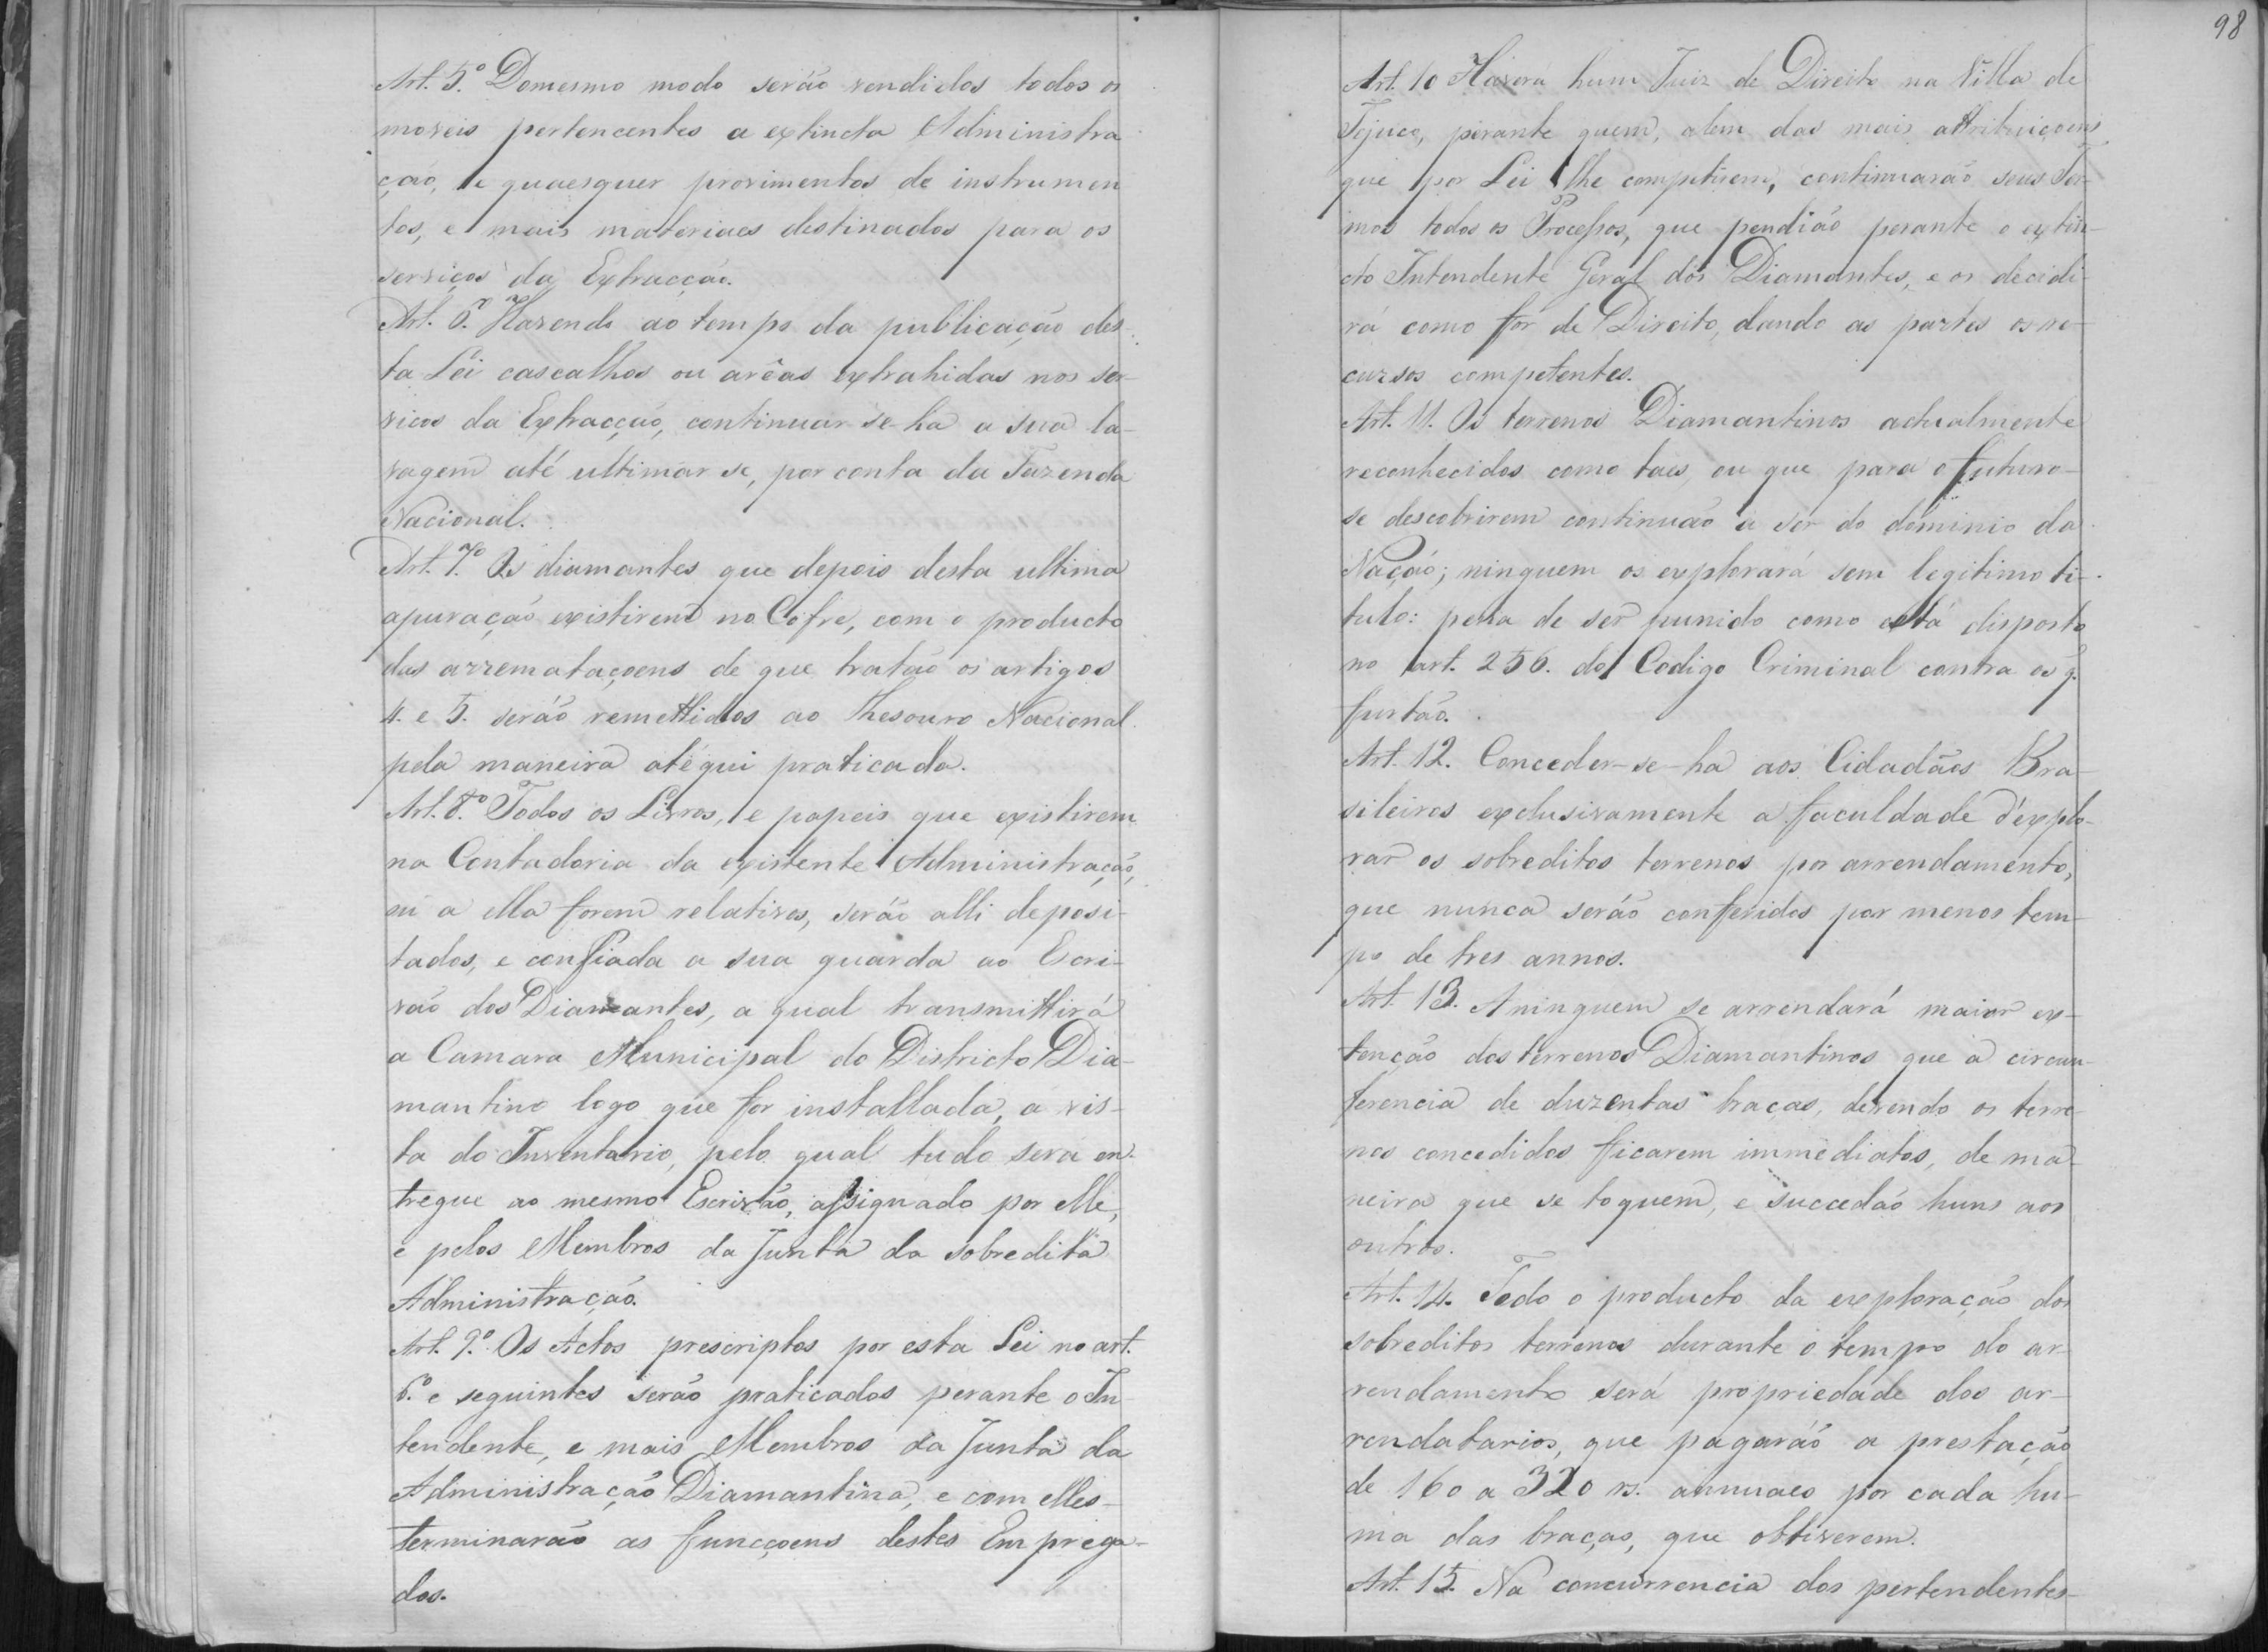 Art. 5.º Domesmo modo serão vendidos todos os
moveis pertencentes a extincta Administra
ção, e quaesquer provimentos de instrumen
tos, e mais materiaes destinados para os
serviços da Extracção.
Art. 6.º Havendo ao tempo da publicação des-
ta Lei cascalhos ou arêas extrahidas nos ser-
vicos da Extracção, continuar-se-ha a sua la-
vagem até ultimar se, por conta da Fazenda
Nacional.
Art. 7.º Os diamantes que depois desta ultima
apuração existirem no Cofre, com o producto
das arremataçoens de que tratão os artigos
4. e 5. serão remettidos ao Thesouro Nacional
pela maneira atéqui praticada.
Art. 8.º Todos os Livros, e papeis que existirem
na Contadoria da existente Administração,
ou a ella forem relativos, serão alli deposi-
tados, e confiada a sua guarda ao Escri-
vão dos Diamantes, a qual transmittirá
a Camara Municipal do Districto Dia-
mantino logo que for installada, a vis-
ta do Inventario, pelo qual tudo será en-
tregue ao mesmo Escrivão, assignado por elle,
e pelos Membros da Junta da sobredita
Administração.
Art. 9.º Os Actos prescriptos por esta Lei no art.
6.º e seguintes serão praticados perante o In
tendente, e mais Membros da Junta da
Administração Diamantina, e com elles-
terminarão as funcçoens destes Emprega-
dos.
98
Art. 10 Haverá hum Juiz de Direito na Villa de
Tejuco, perante quem, alem das mais attribuiçoens
que por Lei lhe competirem, continuarão seus Ter-
mos todos os Processos, que pendião perante o extin-
cto Intendente Geral dos Diamantes, e os decidi-
rá como for de Direito, dando as partes os re-
cursos competentes.
Art. 11. Os terrenos Diamantinos actualmente
reconhecidos como taes, ou que para o futuro-
se descobrirem continuão a ser do dominio da
Nação; ninguem os explorará sem legitimo ti-
tulo: pena de ser punido como está disposto
no art. 256. do Codigo Criminal contra os q.
furtão.
Art. 12. Conceder-se-ha aos Cidadãos Bra-
sileiros exclusivamente a faculdade d'explo-
rar os sobreditos terrenos por arrendamento,
que nunca serão conferidos por menos tem-
po de tres annos.
Art. 13. A ninguem se arrendará maior ex-
tenção dos terrenos Diamantinos que a circum-
ferencia de duzentas braças, devendo os terre-
nos concedidos ficarem immediatos, de ma-
neira que se toquem, e succedão huns aos
outros.
Art. 14. Todo o producto da exploração dos
sobreditos terrenos durante o tempo do ar-
rendamento será propriedade dos ar-
rendatarios, que pagarão a prestação
de 160 a 320 rs. annuaes por cada hu-
ma das braças, que obtiverem.
Art. 15. Na concurrencia dos pertendentes-